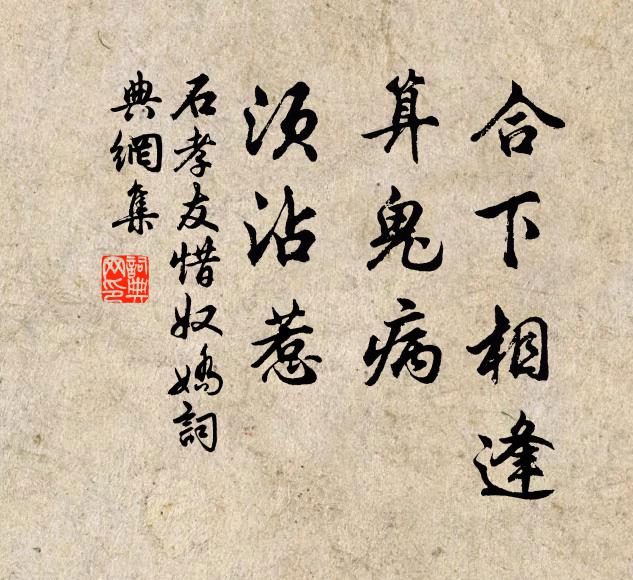 合下相逢
算鬼病
須沾惹
石孝友惜奴嬌詞
典網集
詞典網印